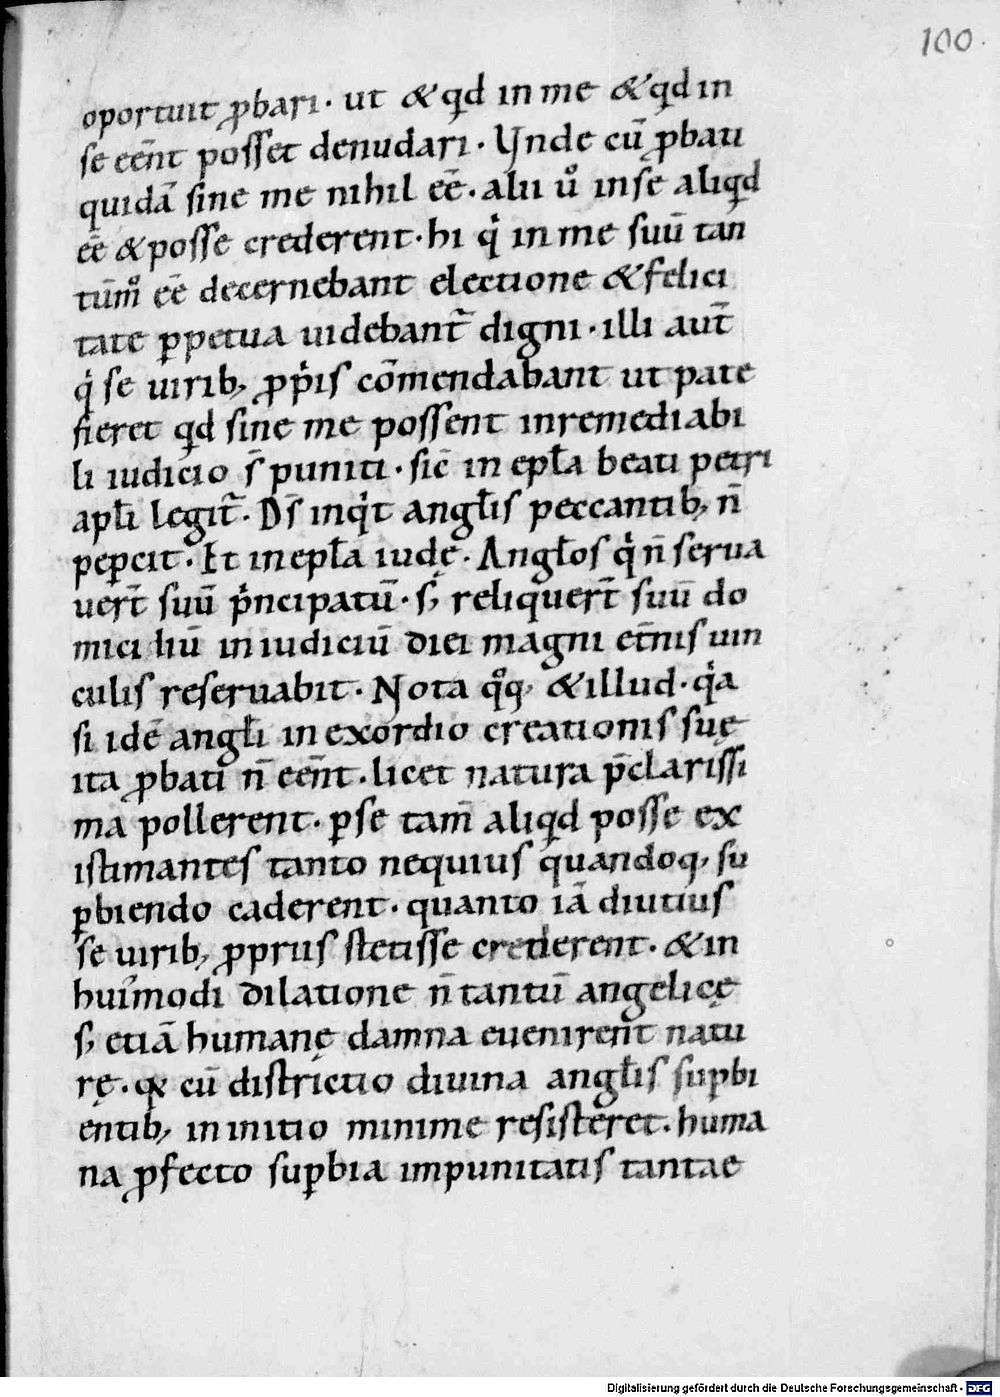 100.
oportuit ꝓbari. ut & qđ in me & qđ in
se eēnt posset denudari. Unde cū ꝓbati
quidā sine me nihil eē. alii ů in se aliqđ
eē & posse crederent. hi qͥ in me suū tan
tūmͦ eē decernebant electione & felici
tate ꝑpetua uidebant̄ digni. illi aut̄
qͥ se uirib; ꝓpͥis cōmendabant ut pate
fieret qđ sine me possent inremediabi
li iudicio s̄ puniti. sic̄ in epła beati petri
apłi legit̄. Ds̄ inqͥt angłis peccantib; n̄
peꝑcit. Et in epła iudę. Angłos qͥ n̄ serua
uert̄ suū pͥncipatū. s; reliquert̄ suū do
miciliū in iudiciū diei magni et̄nis uin
culis reseruabit. Nota qͦq; & illud. qͥa
si idē angłi in exordio creationis suę
ita ꝓbati n̄ eēnt. licet natura p̄clarissi
ma pollerent. ꝑ se tam̄ aliqđ posse ex
istimantes tanto nequius quandoq; su
ꝑbiendo caderent. quanto iā diutius
se uirib; ꝓpriis stetisse crederent. & in
huiꝰmodi dilatione n̄ tantū angelicę
s; etiā humanę damna euenirent natu
rę. qꝫ cū districtio diuina angłis suꝑbi
entib; in initio minime resisteret. huma
na ꝓfecto suꝑbia impunitatis tantae
Digitalisierung gefördert durch die Deutsche Forschungsgemeinschaft - DFG